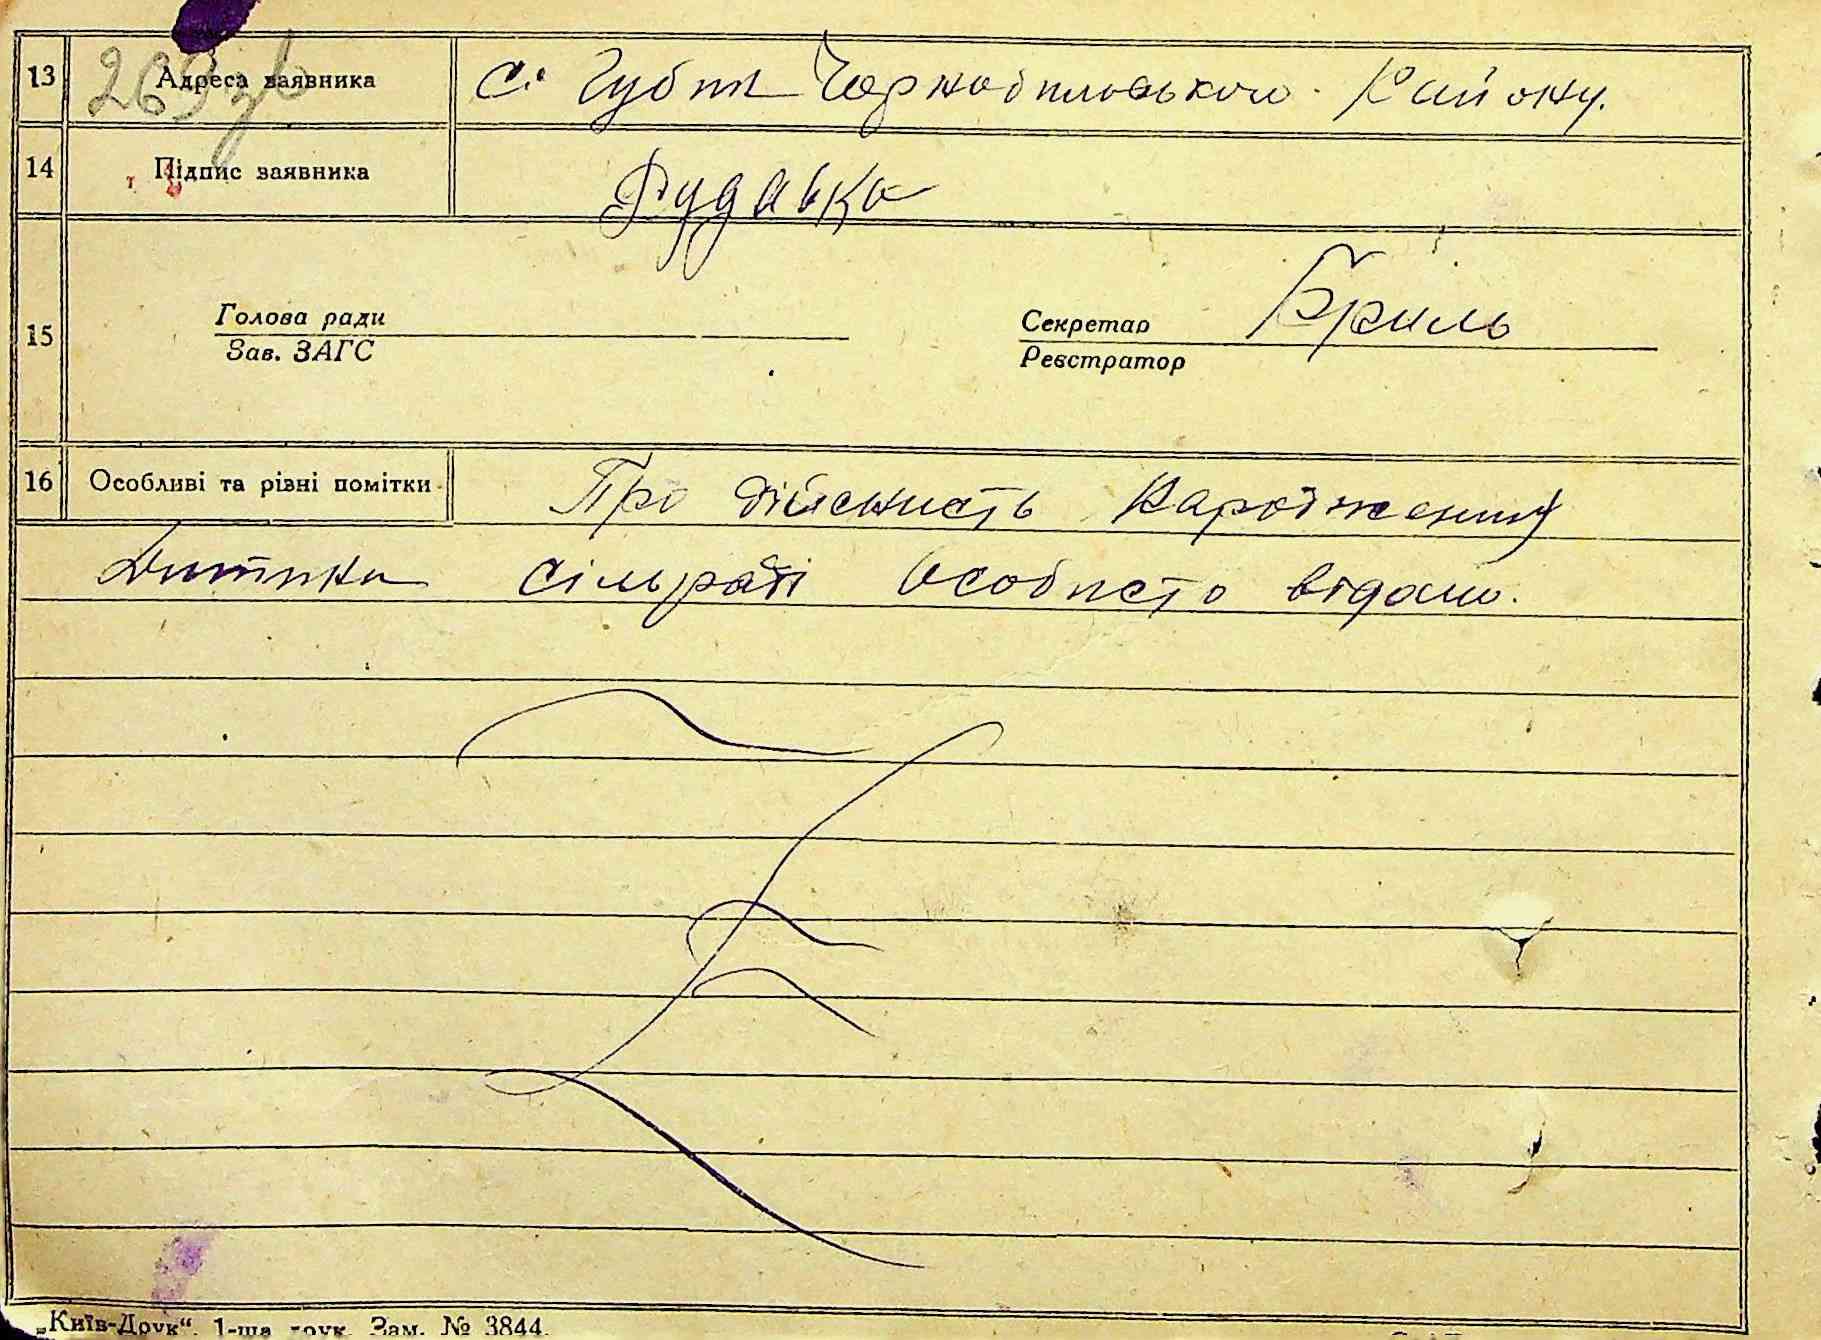 13 Адреса заявника с. Губин Чорнобильського Району.
14 Підпис заявника Рудавка
15 Голова ради Секретар Бриль
Зав. ЗАГС Реєстратор
16 Особливі та різні помітки Про дійсність Народження
Дитини сільраді Особисто відомо.
„Київ-Друк“. 1-ша друк. Зам. № 3844.